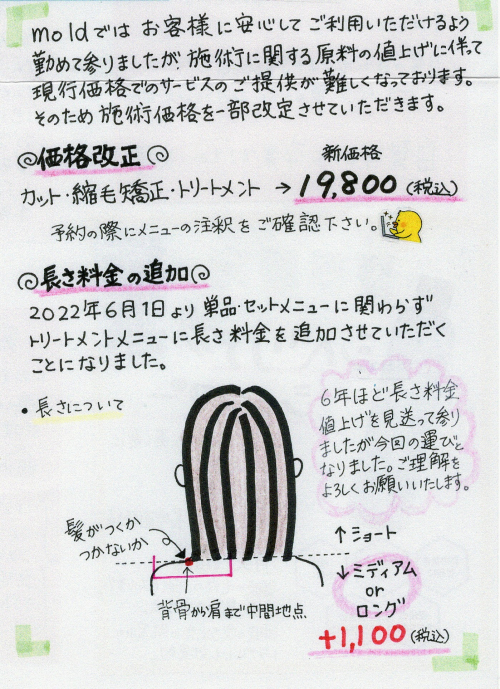 moldでは お客様に安心して ご利用いただけるよう
勤めて参りましたが、施術に関する原料の値上げに伴って
現行価格でのサービスのご提供が難しくなっております。
そのため 施術価格を一部改定させていただきます。
価格改正
新価格
カット・縮毛矯正・トリートメント → 19,800 (税込)
予約の際にメニューの注釈をご確認下さい。
長さ料金の追加
2022年6月1日より 単品・セットメニューに関わらず
トリートメントメニューに長さ料金を追加させていただく
ことになりました。
・長さについて
6年ほど長さ料金
値上げを見送って参り
ましたが今回の運びと
なりました。ご理解を
よろしくお願いいたします。
髪がつくか
つかないか
↑ショート
↓ミディアム
or
ロング
背骨から肩まで中間地点
+1,100 (税込)